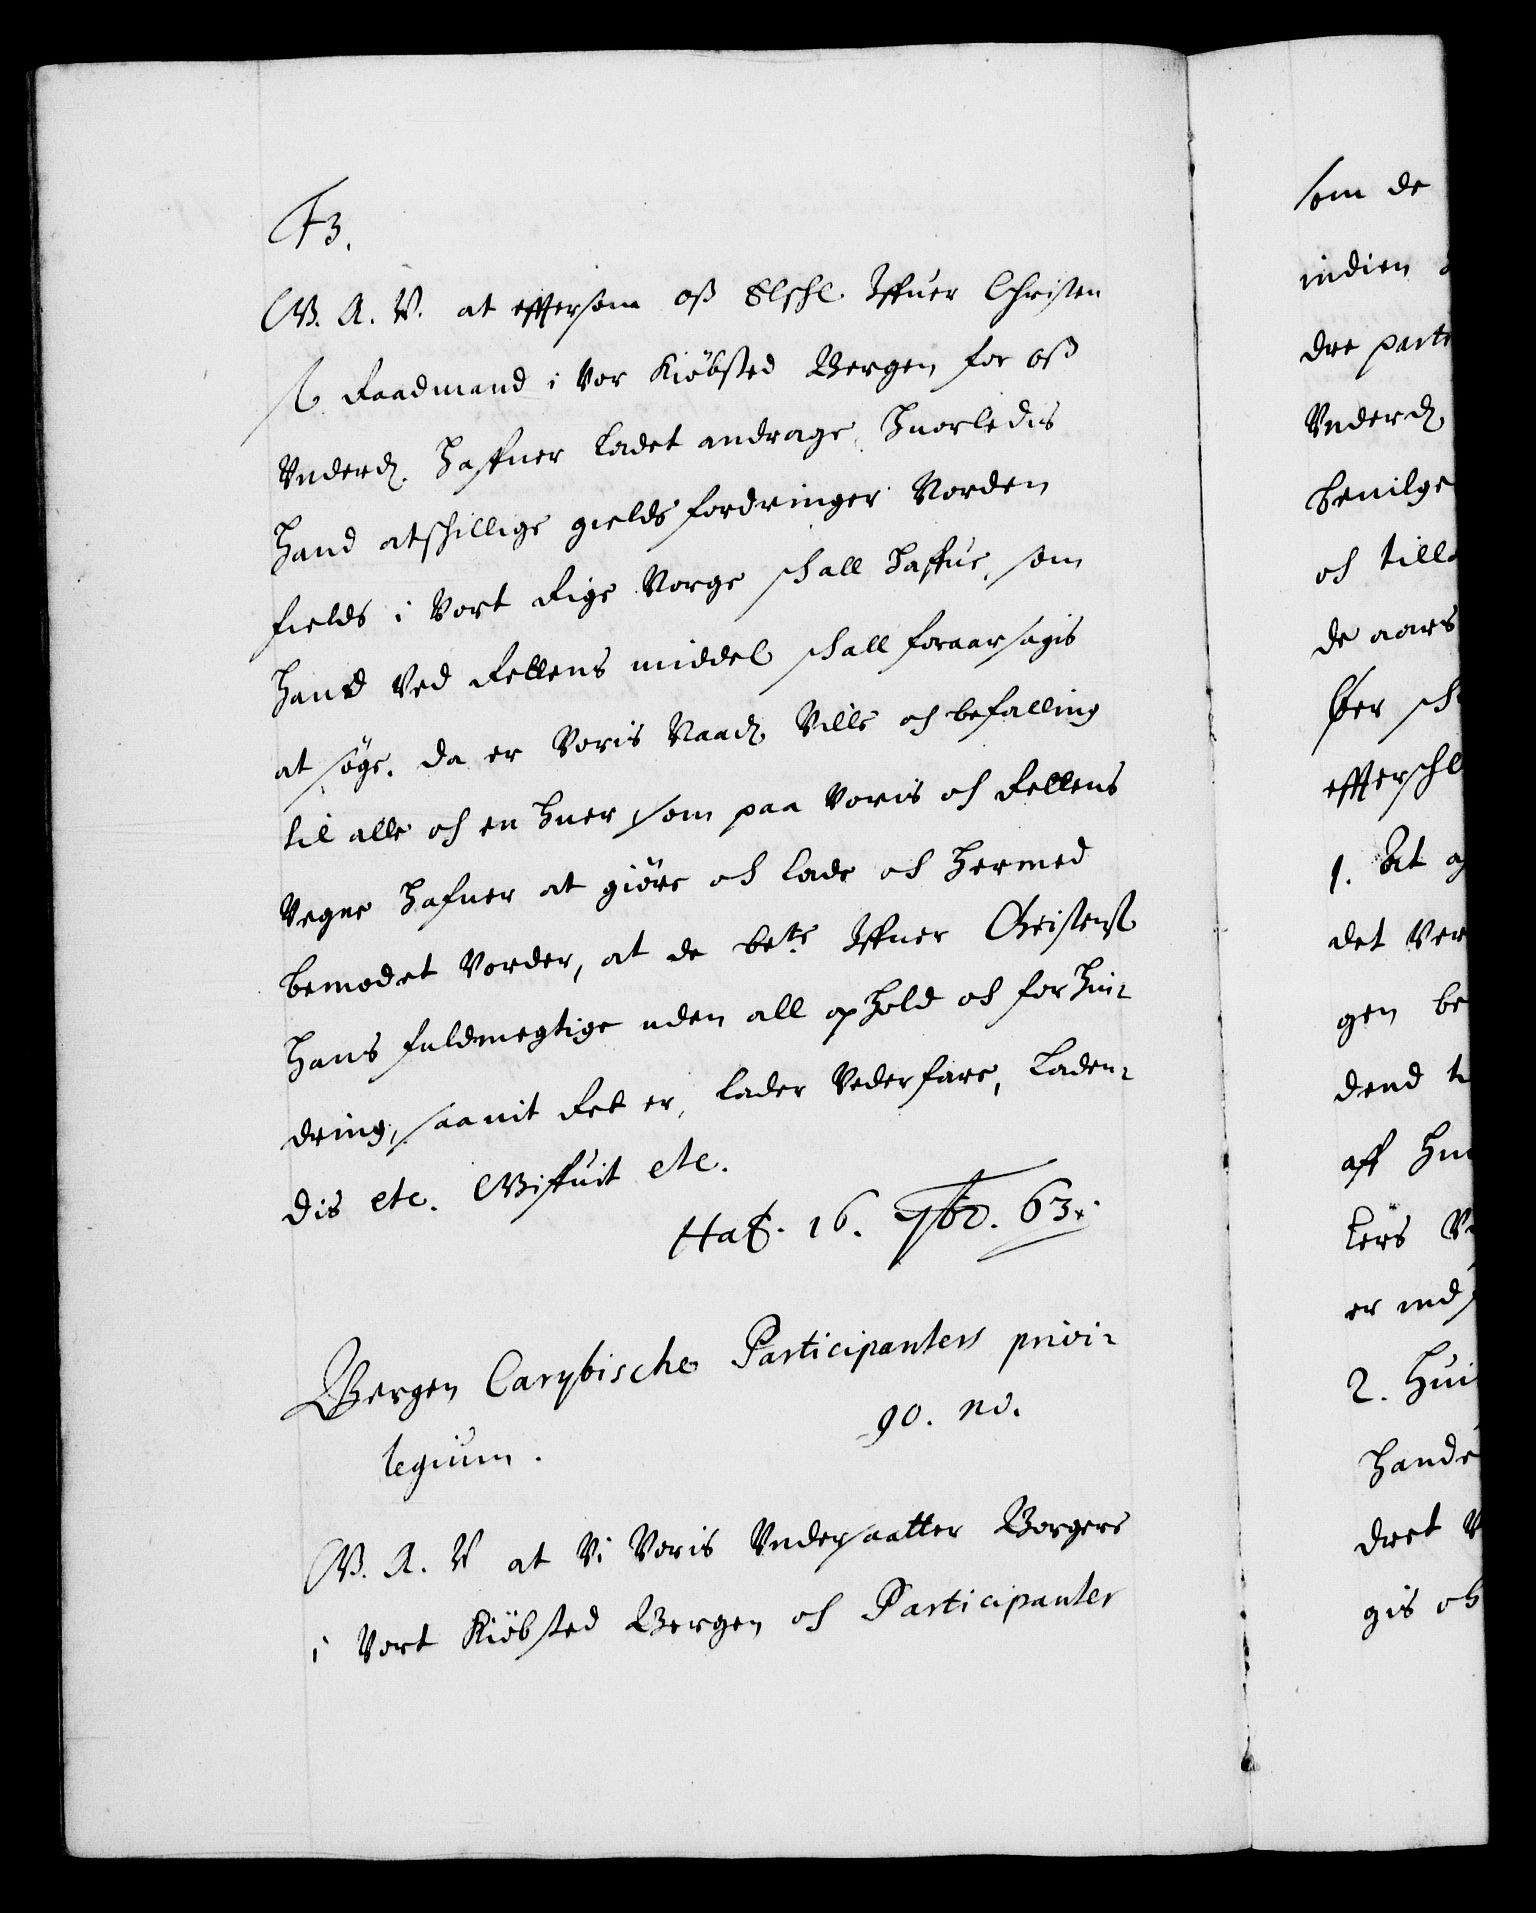 F3.
W. A. V. at efftersom oß Elschl. Iffuer Christen
ß Raadmand i vor Kiöbsted Bergen for oß
Underd. haffuer ladet andrage, huorledis
hand atschillige gields fordringer Norden
fields i Vort Rige Norge schall haffue, som
hand Ved Rettens middel schall foraarsagis
at söge. da er Voris Naad. Ville och befalling
til alle och en huer som paa voris och Rettens
Vegne hafuer at giöre och lade och hermed
bemodet vorder, at de bete Iffuer Christens
hans fuldmegtige uden all ophold och forhin-
dring, saauit Ret er, lader Vederfare, Laden-
dis etc. Giffuit etc.
Haf. 16. 9br. 63.
Bergen Carybische Participanters privi-
legium. 90. no.
W. A. V at Vi Voris Undersaatter Borgere
i Vort Kiöbsted Bergen och Participanter
som de
indien
dre parte
Underd.
beuilge
och till
de aars
Øer sch
effterschl
1. At
det ver
gen be
dend t
aff hu
lers
er ind
2. Hui
hande
dret
gis och